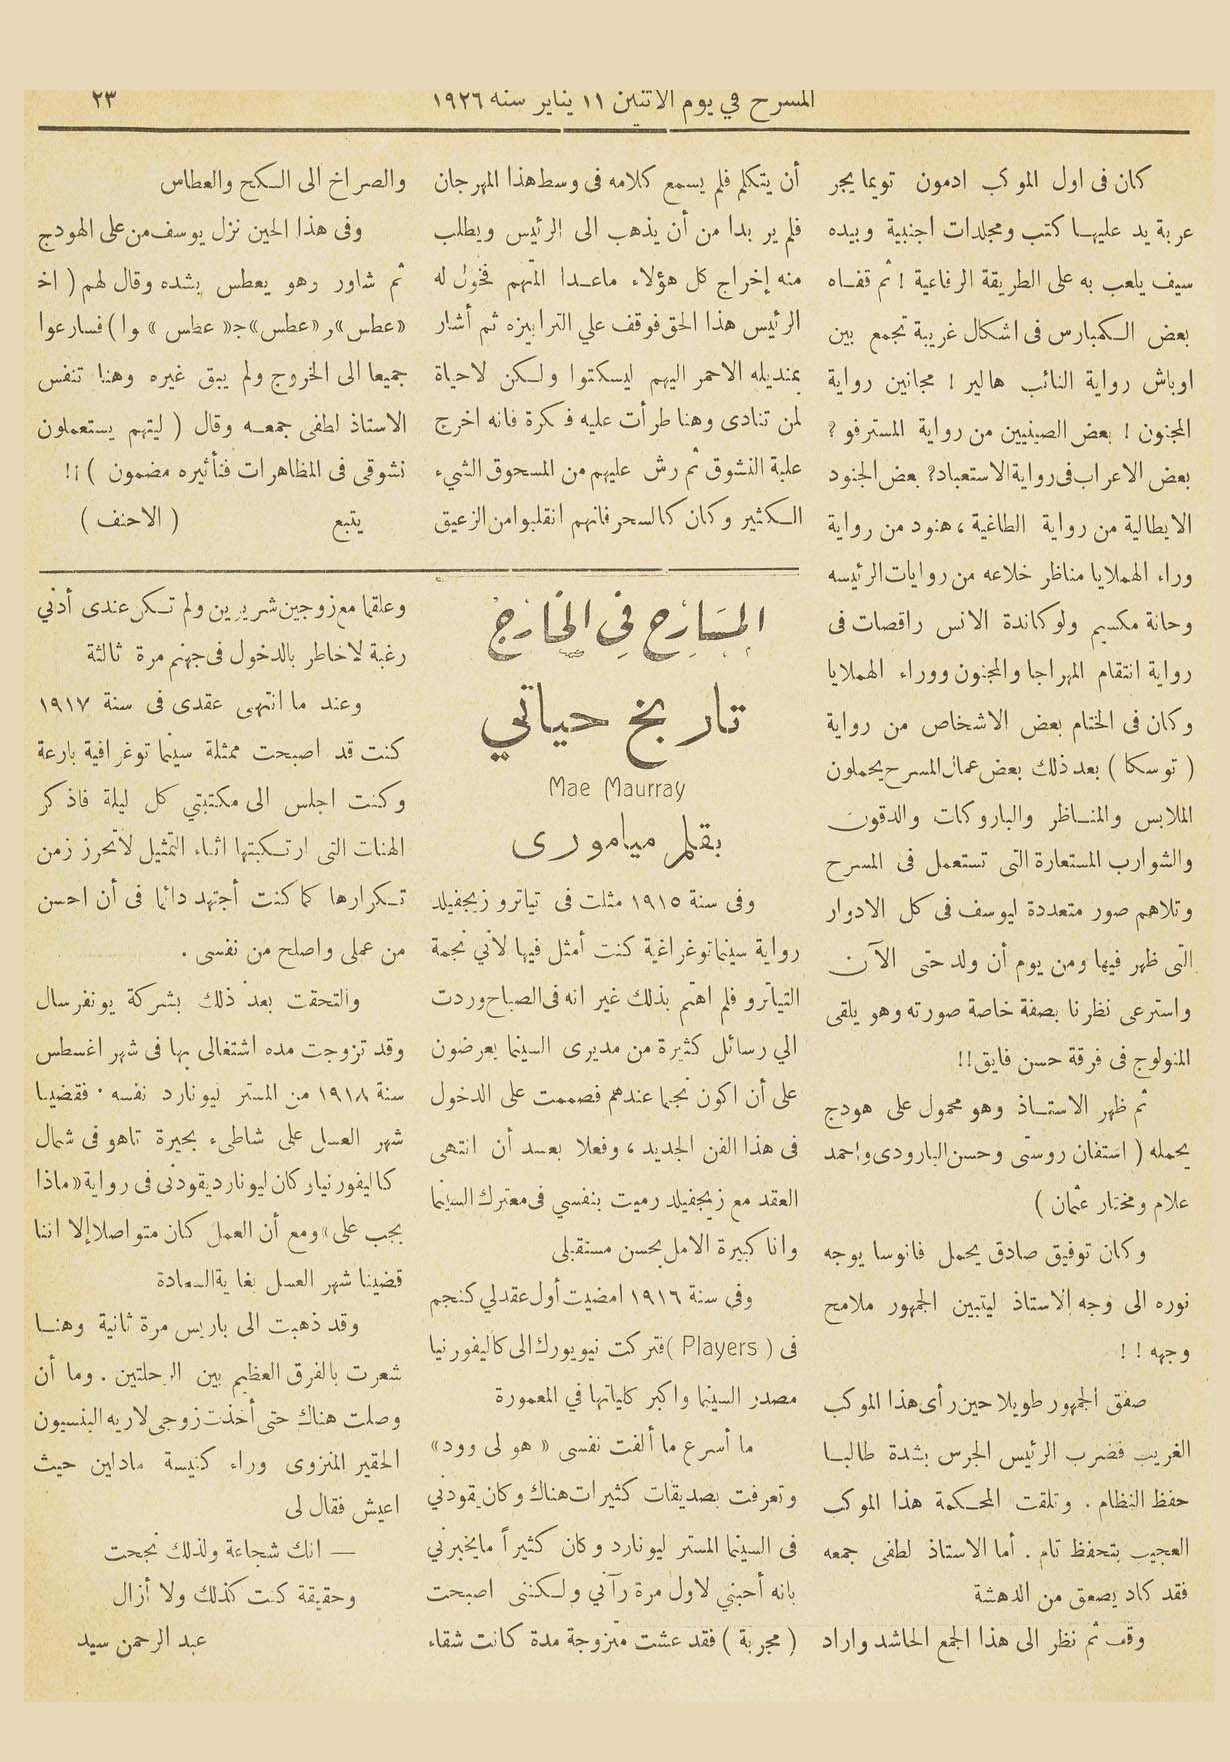 المسرح في يوم الاثنين ١١ يناير سنه ١٩٢٦
٢٣
كان فى اول الموكب ادمون تويما يجر
عربة يد عليها كتب ومجلدات اجنبية وبيده
سيف يلعب به على الطريقة الرفاعية ! ثم قفاه
بعض الكمبارس فى اشكال غريبة تجمع بين
اوباش رواية النائب هالير ! مجانين رواية
المجنون ! بعض الصينيين من رواية المسترفو ؟
بعض الاعراب فى رواية الاستعباد؟ بعض الجنود
الايطالية من رواية الطاغية ، هنود من رواية
وراء الهملايا مناظر خلاعه من روايات الرئيسه
وحانة مكسيم ولوكاندة الانس راقصات فى
رواية انتقام المهراجا والمجنون ووراء الهملايا
وكان فى الختام بعض الاشخاص من رواية
( توسكا ) بعد ذلك بعض عمال المسرح يحملون
الملابس والمناظر والباروكات والدقون
والشوارب المستعارة التى تستعمل فى المسرح
وتلاهم صور متعددة ليوسف فى كل الادوار
التى ظهر فيها ومن يوم أن ولد حتى الآن
واسترعى نظرنا بصفة خاصة صورته وهو يلقى
المنولوج فى فرقة حسن فايق !!
ثم ظهر الاستاذ وهو محمول على هودج
يحمله ( استفان روستى وحسن البارودى واحمد
علام ومختار عثمان )
وكان توفيق صادق يحمل فانوسا يوجه
نوره الى وجه الاستاذ ليتبين الجمهور ملامح
وجهه ! !
صفق الجمهور طويلا حين رأى هذا الموكب
الغريب فضرب الرئيس الجرس بشدة طالبا
حفظ النظام . وتلقت المحكمة هذا الموكب
العجيب بتحفظ تام . أما الاستاذ لطفى جمعه
فقد كاد يصعق من الدهشة
وقف ثم نظر الى هذا الجمع الحاشد واراد
أن يتكلم فلم يسمع كلامه فى وسط هذا المهرجان
فلم ير بدا من أن يذهب الى الرئيس ويطلب
منه إخراج كل هؤلاء ماعدا المتهم فخول له
الرئيس هذا الحق فوقف علي الترابيزه ثم أشار
بمنديله الاحمر اليهم ليسكتوا ولكن لاحياة
لمن تنادى وهنا طرأت عليه فكرة فانه اخرج
علبة النشوق ثم رش عليهم من المسحوق الشيء
الكثير وكان كالسحر فانهم انقلبوا من الزعيق
والصراخ الى الكح والعطاس
وفى هذا الحين نزل يوسف من على الهودج
ثم شاور وهو يعطس بشده وقال لهم ( اخ
«عطس» ر «عطس» جـ « عطس » وا ) فسارعوا
جميعا الى الخروج ولم يبق غيره وهنا تنفس
الاستاذ لطفى جمعه وقال ( ليتهم يستعملون
نشوقى فى المظاهرات فتأثيره مضمون ) !!
يتبع ( الاحنف )
المسارح في الخارج
تاريخ حياتي
Mae Maurray
بقلم مياموری
وفى سنة ١٩١٥ مثلت فى تياترو زيجفيلد
رواية سينماتوغراغية كنت أمثل فيها لأني نجمة
التياترو فلم اهتم بذلك غير انه فى الصباح وردت
الي رسائل كثيرة من مديرى السينما يعرضون
على أن اكون نجما عندهم فصممت على الدخول
فى هذا الفن الجديد ، وفعلا بعد أن انتهى
العقد مع زيجفيلد رميت بنفسي فى معترك السينما
وانا كبيرة الامل بحسن مستقبلى
وفي سنة ١٩١٦ امضيت أول عقد لي كنجم
فى ( Players ) فتركت نيويورك الى كاليفورنيا
مصدر السينما واكبر كلياتها في المعمورة
ما أسرع ما ألفت نفسى « هو لى وود»
وتعرفت بصديقات كثيرات هناك وكان يقودني
فى السينما المستر ليونارد وكان كثيراً ما يخبرني
بانه أحبني لاول مرة رآني ولكننى اصبحت
( مجربة ) فقد عشت متزوجة مدة كانت شقاء
وعلقما مع زوجين شريرين ولم تكن عندى أدنى
رغبة لاخاطر بالدخول فى جهنم مرة ثالثة
وعند ما انتهى عقدى فى سنة ١٩١٧
كنت قد اصبحت ممثلة سينما توغرافية بارعة
وكنت اجلس الى مكتبتي كل ليلة فاذكر
الهنات التى ارتكبتها اثناء التمثيل لاتحرز زمن
تكرارها كما كنت أجتهد دائما فى أن احسن
من عملى واصلح من نفسى .
والتحقت بعد ذلك بشركة يونفرسال
وقد تزوجت مده اشتغالى بها فى شهر اغسطس
سنة ١٩١٨ من المستر ليونارد نفسه . فقضينا
شهر العسل على شاطىء بحيرة تاهو فى شمال
كاليفورنيا ركان ليونارد يقودنى فى رواية «ماذا
يجب على» ومع أن العمل كان متواصلا إلا اننا
قضينا شهر العسل بغاية السعادة
وقد ذهبت الى باريس مرة ثانية وهنا
شعرت بالفرق العظيم بين الرحلتين . وما أن
وصلت هناك حتى أخذت زوجى لاريه البنسيون
الحقير المنزوى وراء كنيسة مادلين حيث
اعيش فقال لى
— انك شجاعة ولذلك نجحت
وحقيقة كنت كذلك ولا أزال
عبد الرحمن سيد